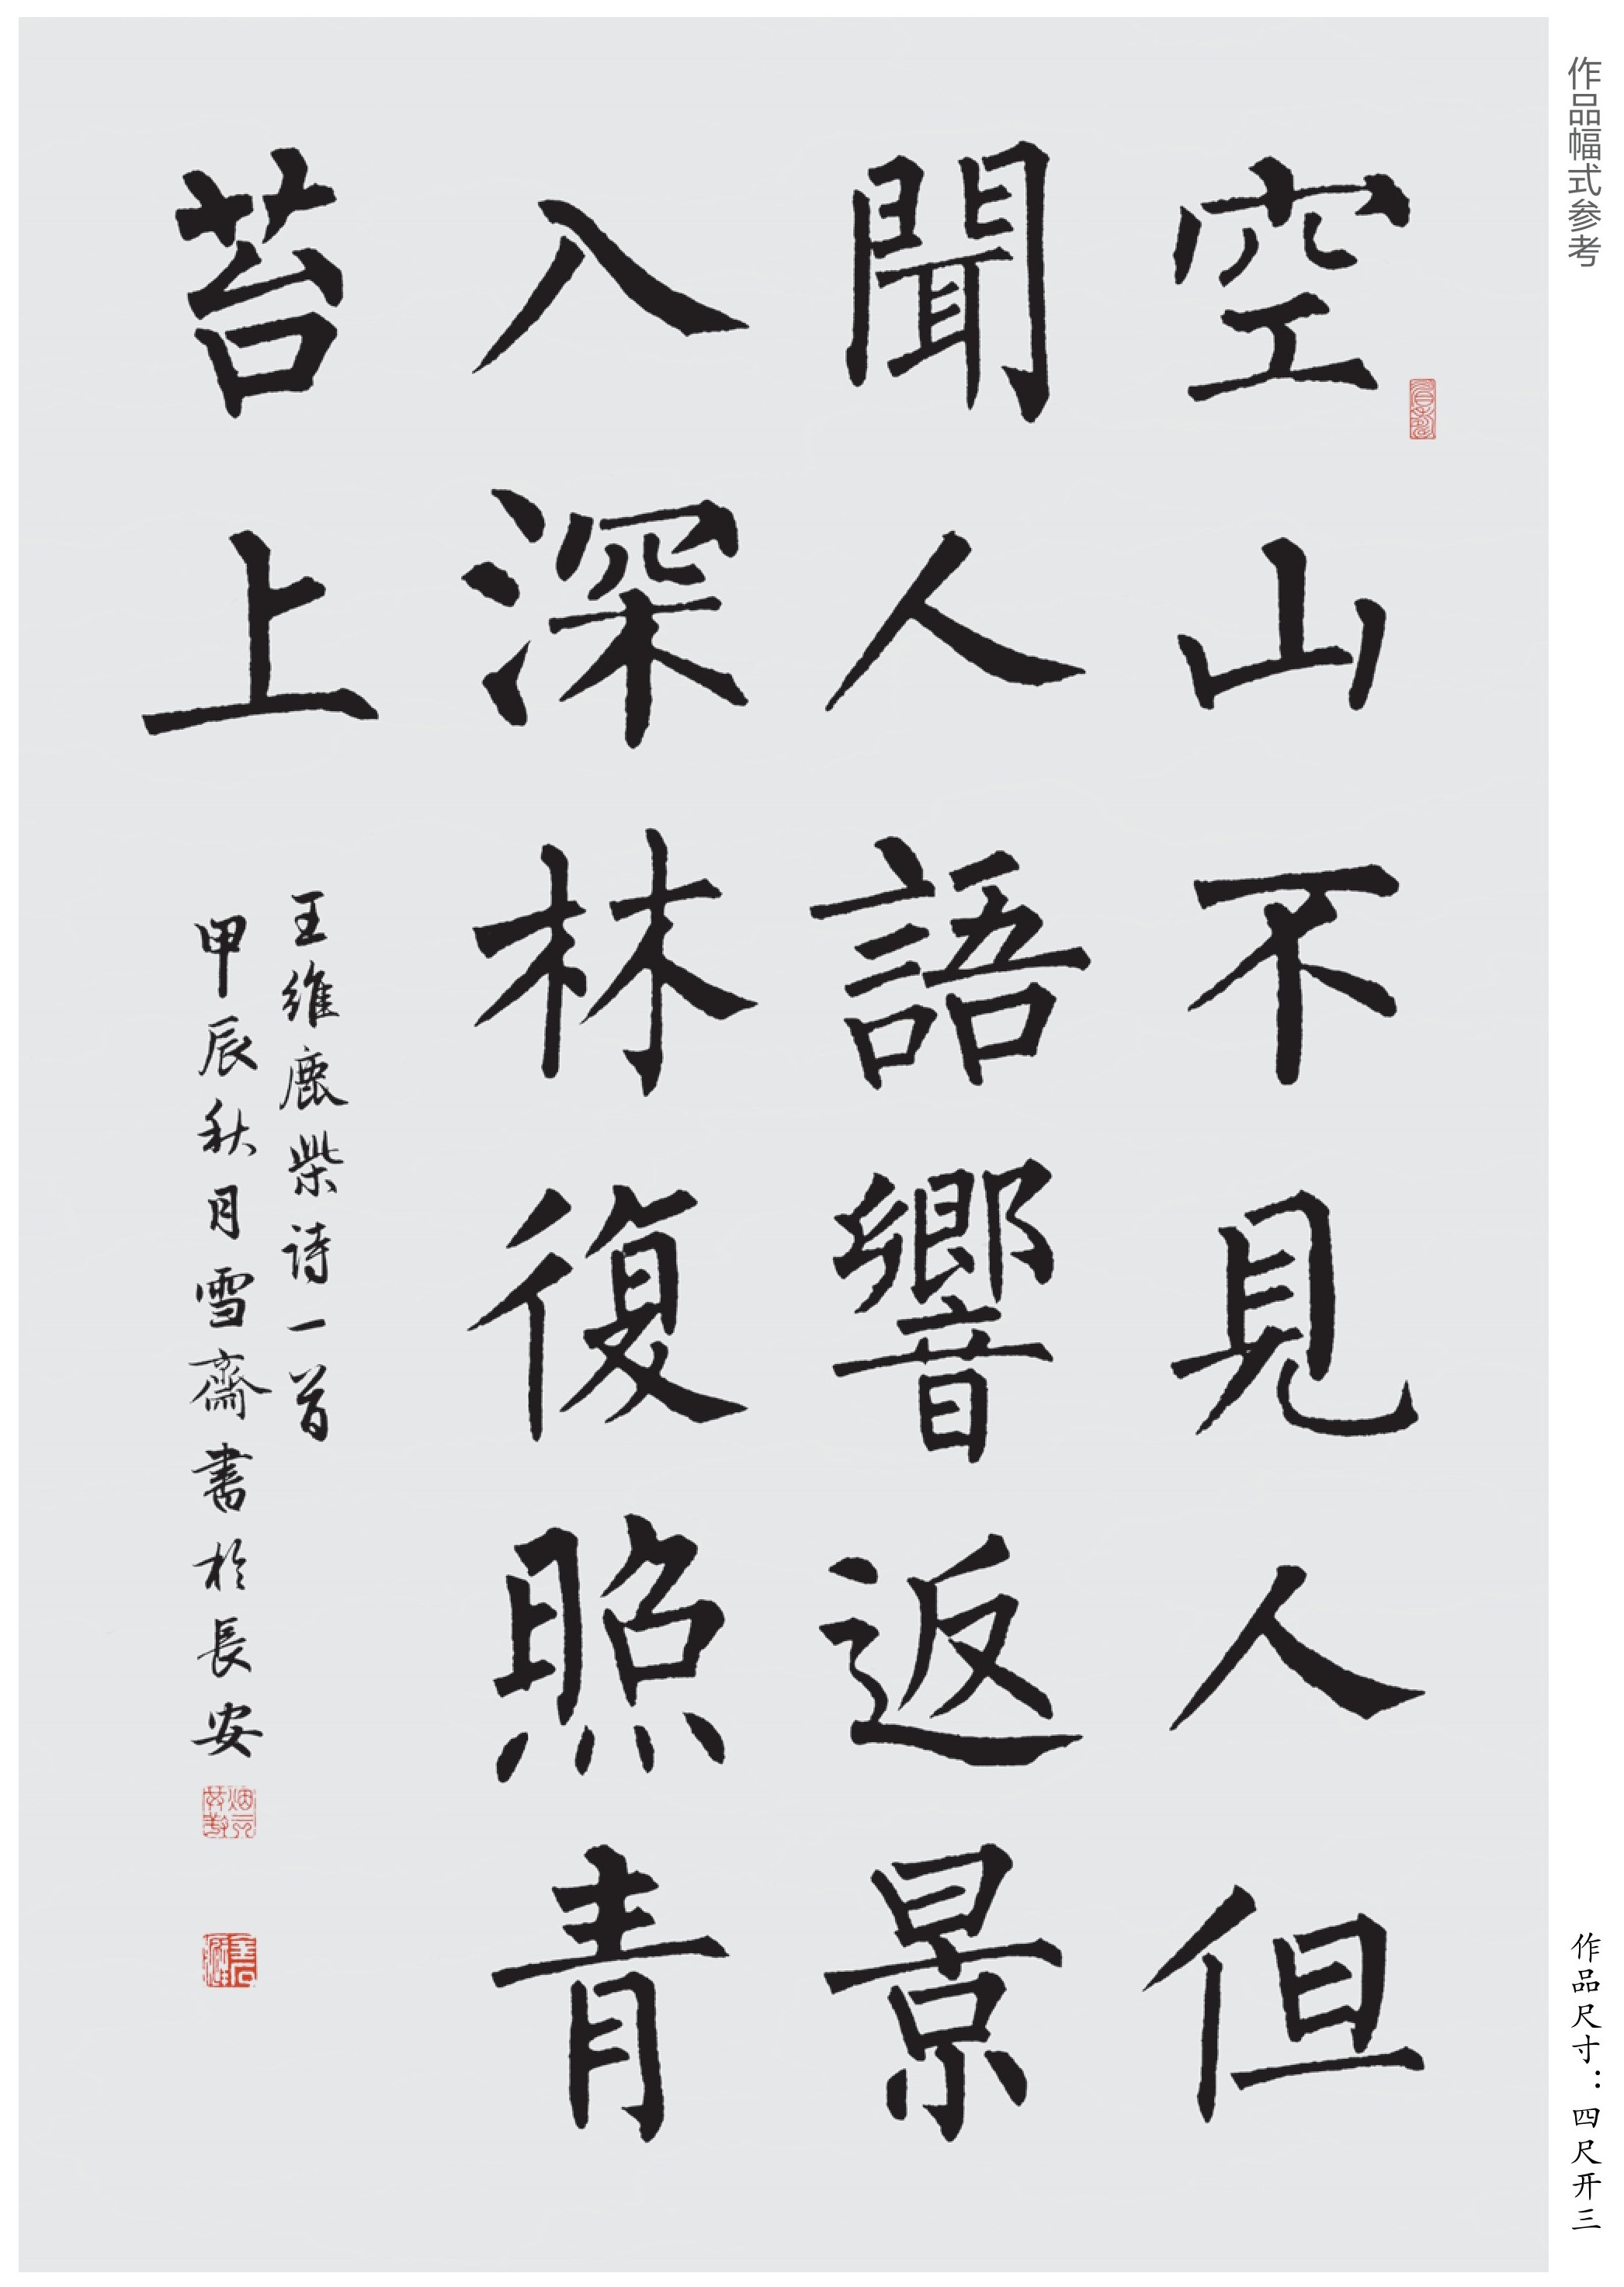 作品幅式参考
空山不見人但
聞人語響返景
入深林復照青
苔上
王維鹿柴诗一首
甲辰秋月雪齋書於長安
作品尺寸：四尺开三